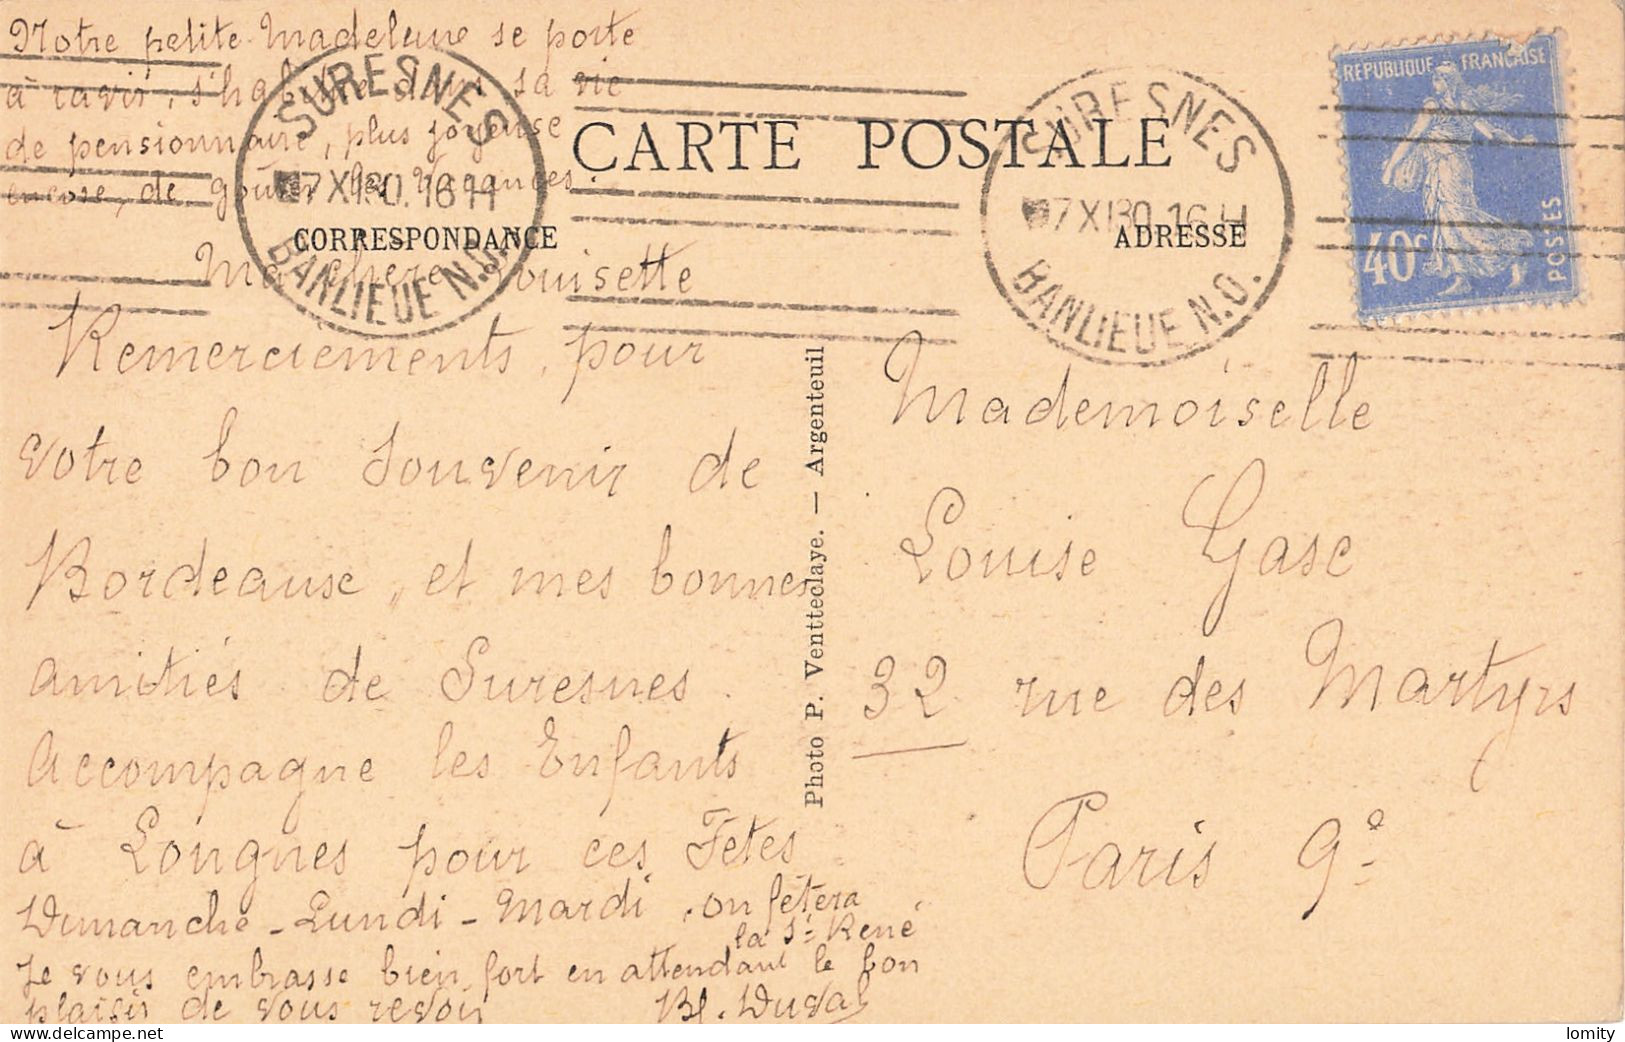 Notre petite Madeleine se porte
à ravir, s'habitue dans sa vie
de pensionnaire, plus joyeuse
encore, de goûter les Vacances.
SURESNES
7 XI 30. 16 H
BANLIEUE N.O.
CARTE POSTALE
SURESNES
7 XI 30. 16 H
BANLIEUE N.O.
REPUBLIQUE FRANÇAISE
40c
POSTES
CORRESPONDANCE
ADRESSE
Ma chere Louisette
Remerciements, pour
votre bon Souvenir de
Bordeause, et mes bonnes
amitiés de Suresnes.
Accompagne les Enfants
à Longnes pour ces Fetes
Dimanche - Lundi - Mardi, on fêtera
la St René
Je vous embrasse bien fort en attendant le bon
plaisir de vous revoir
Bl. Duval
Photo P. Ventteclaye. — Argenteuil
Mademoiselle
Louise Gasc
32 rue des Martyrs
Paris 9e
lomity